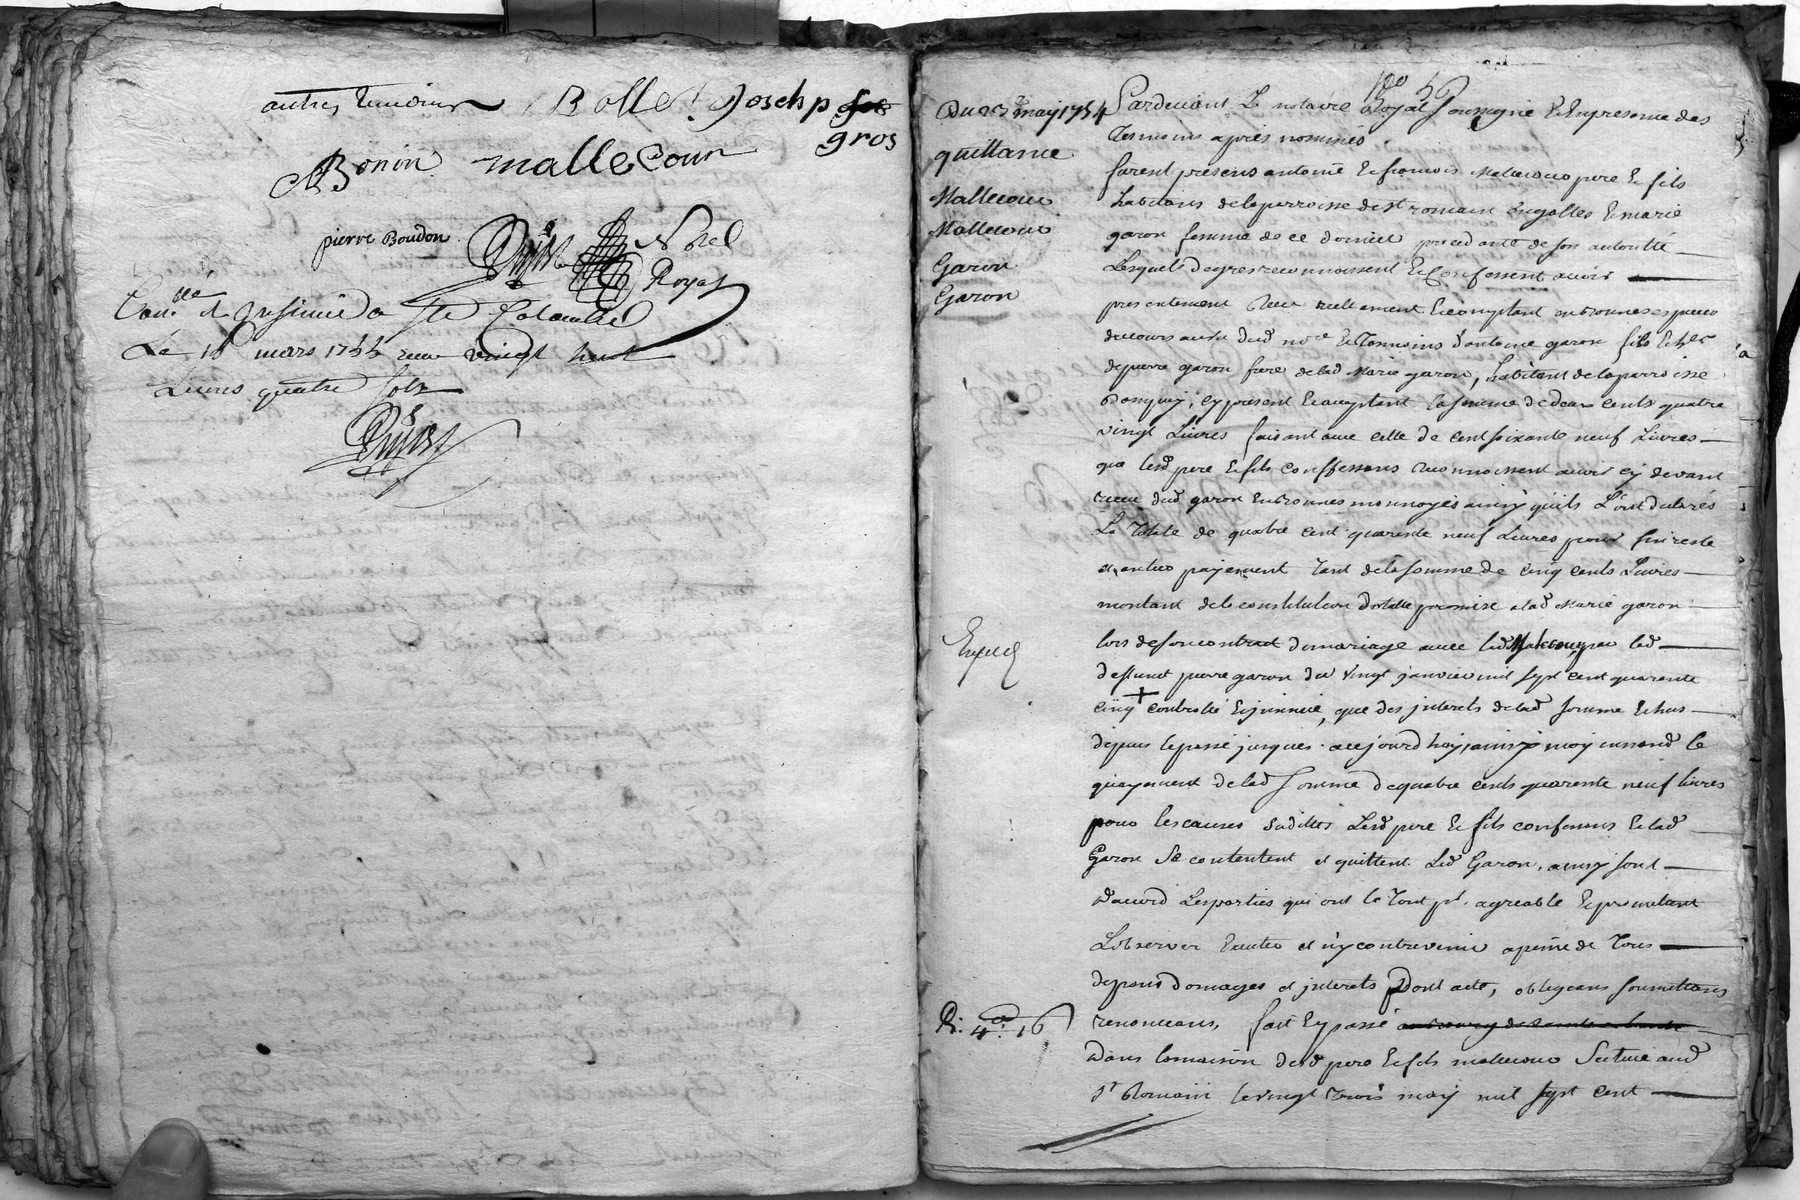 autres temoins Bollet Joschp gros
gros
ABonin mallecour
pierre Boudon Dujast Norel
Royal
Con.lle et Insinué a Ste Colombe
Le 18 mars 1755 receu vingt huit
Livres quatre sols
Dujast
100
Du 23e may 1754
quittance
Mallecour
Mallecour
Garon
Garon
Pardevant Le notaire Royal soussigné Et En presence des
Temoins apres nommés
furent présens antoine Et francois Mallecour pere Et fils
habitans de la parroisse de St romain Engalles Et marie
garon femme de ce dernier procedante de son autorité
Lesquels de gres reconnoissent Et Confessent avoir
presentement Receu reellement Et comptant en bonnes especes
de cours au vu dud nore Et Temoins d'antoine garon fils Et her
de pierre garon frere de lad Marie garon, habitant de la parroisse
Donguy, cy present Et acceptant la somme de deux cents quatre
vingt Livres faisant avec celle de Cent soixante neuf Livres
que lesd pere Et fils Confessans reconnoissent avoir cy devant
receu dud garon En bonnes monnoyes ainsy qu'ils L'ont declarés
La Totale de quatre cent quarente neuf Livres pour fin reste
et entier payement Tant de la somme de cinq cents Livres
montant de la constitution dotalle promise a lad Marie garon
lors de son contrat de mariage avec led Mallecour, par led
deffunct pierre garon du vingt janvier mil sept cent quarente
cinq controllé Et insinué, que des jnterets de lad somme Echus
depuis le passé jusques aujourd huy, ainsy moyennand le
payement de lad somme de quatre cents quarente neuf livres
pour les causes susdittes Lesd pere Et fils confessans Et lad
Garon se contentent et quittent Led Garon, ainsy sont
d'accord Les parties qui ont le Tout pt. agreable Et promettent
L'observer Executer et n'y contrevenir a peine de Tous
depens domages et jnterets Dont acte, obligeans soumettans
renonceans, fait Et passé
Dans la maison desd pere Et fils mallecour scituée aud
St Romain le vingt trois may mil sept cent
Expedié
R. 4# 16